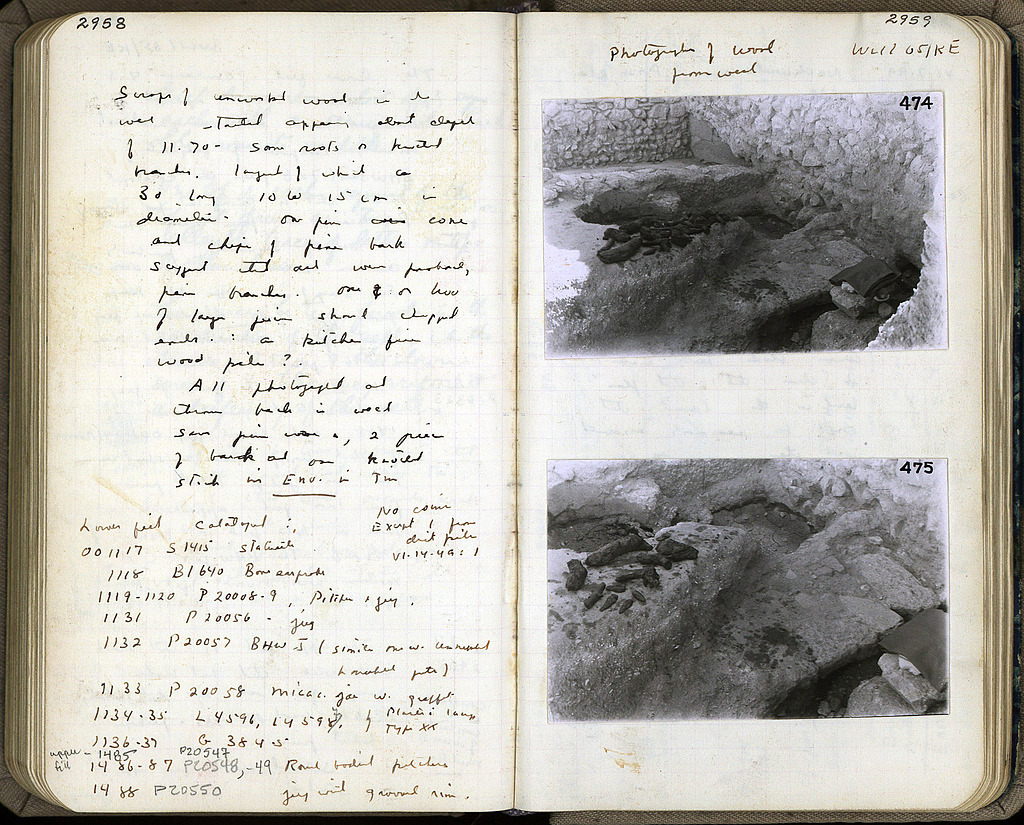 2958
Scraps of unworked wood in the
well started appearing about depth
of 11.70 - Some roots or knotted
branches. largest of which ca
30 long 10 to 15 cm in
diameter. One pine cone
and chips of pine bark
suggest that all were probably
pine branches. One or two
of larger pieces showed chopped
ends. : a kitchen fire
wood pile?.
All photographed and
thrown back in well
save pine cone, 2 pieces
of bark and one knotted
stick in Env. in Tin
Lower fill catalogued :
No coins
Except 1 from
dirt pile
VI-14-49:1
OO 1117 S 1415 statuette
1118 BI 640 Bone
1119-1120 P 20008-9, Pitcher + jug.
1131 P 20056 - jug
1132 P 20057 (similar one w.
1133 P 20058 micac. jar w. graffit
1134-35 L 4596, L 4597, of lamps
Type XX
1136-37 G 384-5
upper fill - 1485 P20547
1486-87 P20548,-49 Round bodied pitchers
1488 P20550 jug with grooved rim.
2959
Photographs of wood
from well
Well O5/KE
474
475